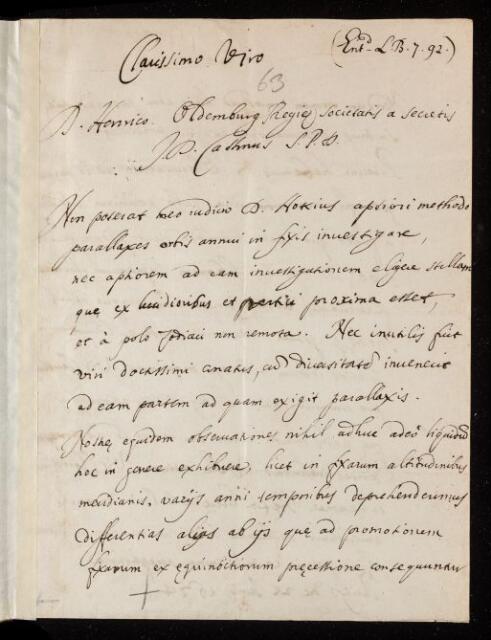 Clarissimo Viro
(Entd. L.B. 7. 92.)
63
D. Henrico Oldemburg Regiȩ Societatis a secretis
J.D. Cassinus S.P.D.
Non poterat meo iudicio D. Hokius aptiori methodo
parallaxes orbis annui in fixis investigare,
nec aptiorem ad eam investigationem eligere stellam
quȩ ex lucidioribus et vertici proxima esset,
et à polo Zodiaci non remota. Nec inutilis fuit
viri doctissimi conatus, diversitatē invenerit
ad eam partem ad quam exigit parallaxis.
Nostrȩ equidem observationes nihil adhuc adeò liquidū
hoc in genere exhibuere, licet in fixarum altitudinibus
meridianis, varijs anni temporibus deprehenderimus
differentias alias ab ijs quȩ ad promotionem
fixarum ex ȩquinoctiorum prȩcessione consequuntur